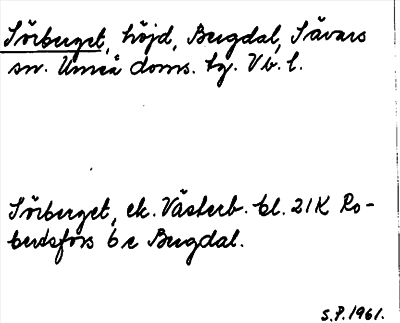 Sörberget, höjd, Bergdal, Sävars
sn. Umeå doms. tg. Vb. l.
Sörberget, ek. Västerb. bl. 21K Ro-
bertsfors 6 e Bergdal.
S.P. 1961.